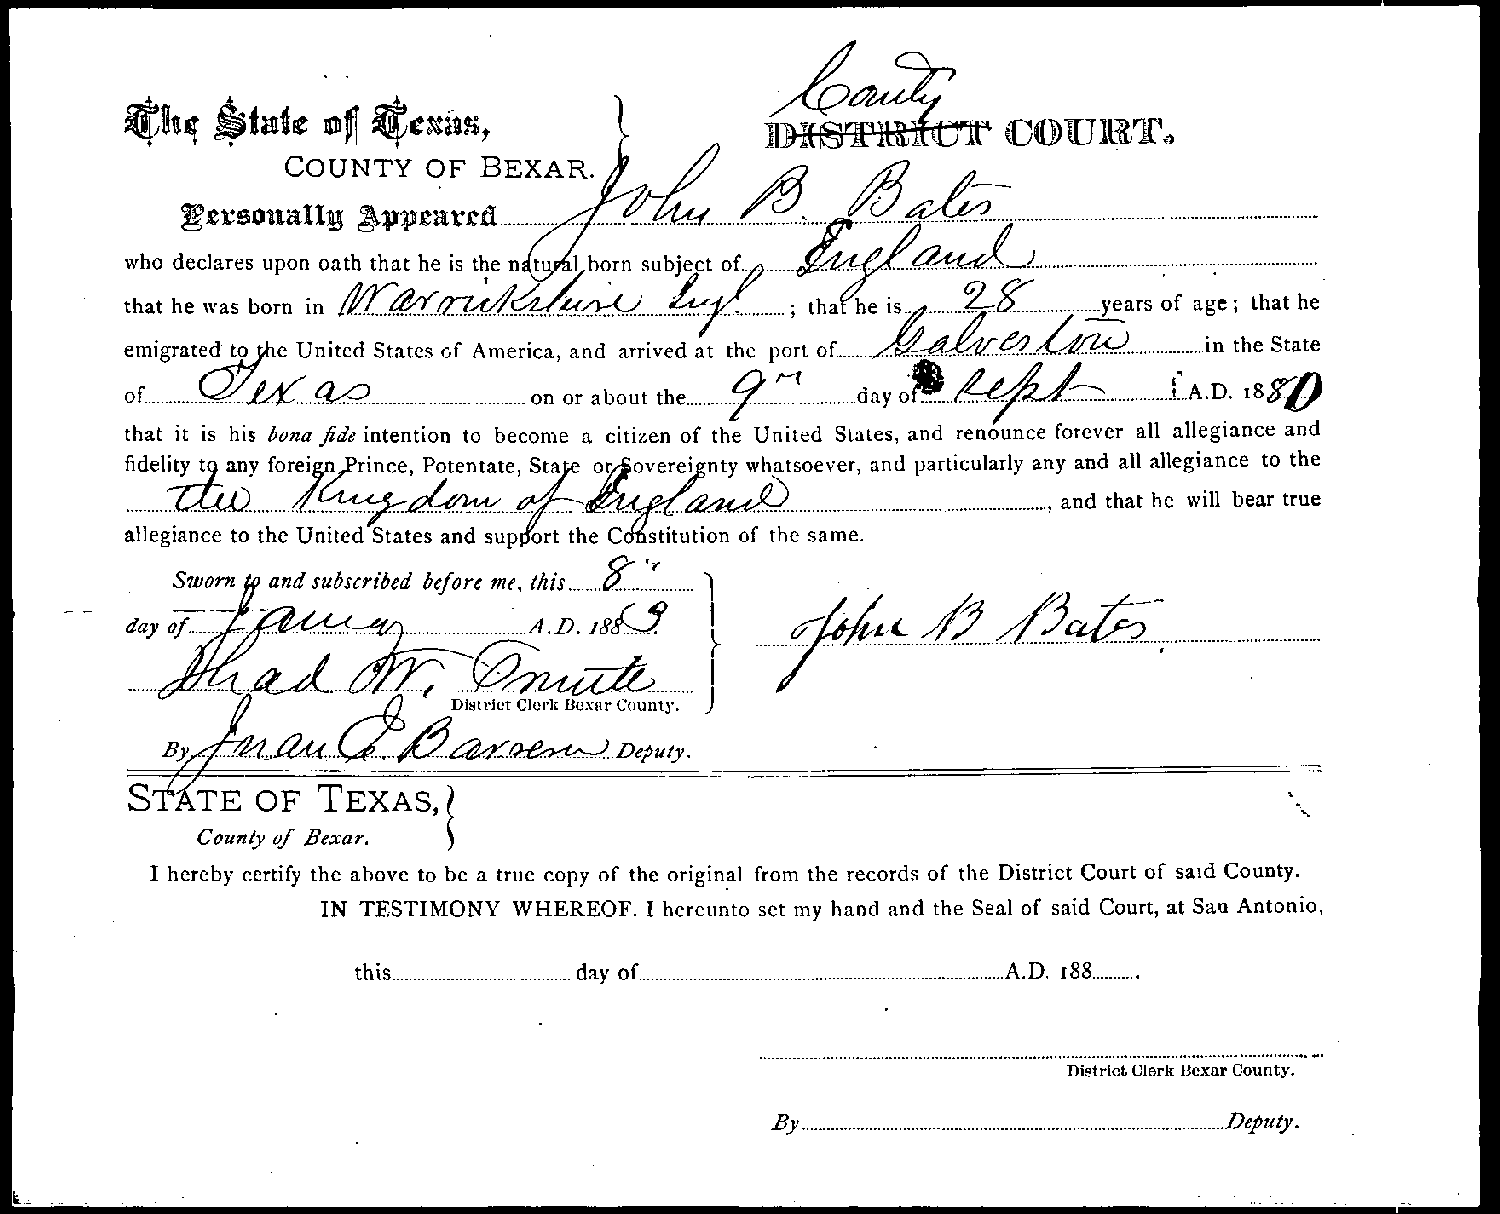 County
The State of Texas, } DISTRICT COURT.
COUNTY OF BEXAR.
Personally Appeared John B. Bates
who declares upon oath that he is the natural born subject of England
that he was born in Warwickshire Engl. ; that he is 28 years of age; that he
emigrated to the United States of America, and arrived at the port of Galveston in the State
of Texas on or about the 9" day of Sept A.D. 1880
that it is his bona fide intention to become a citizen of the United States, and renounce forever all allegiance and
fidelity to any foreign Prince, Potentate, State or Sovereignty whatsoever, and particularly any and all allegiance to the
the Kingdom of England , and that he will bear true
allegiance to the United States and support the Constitution of the same.
Sworn to and subscribed before me, this 8"
day of A.D. 1883
John B Bates
Thad W. Smith
District Clerk Bexar County.
By Juan E. Barrera Deputy.
STATE OF TEXAS, }
County of Bexar.
I hereby certify the above to be a true copy of the original from the records of the District Court of said County.
IN TESTIMONY WHEREOF. I hereunto set my hand and the Seal of said Court, at San Antonio,
this day of A.D. 188 .
District Clerk Bexar County.
By Deputy.